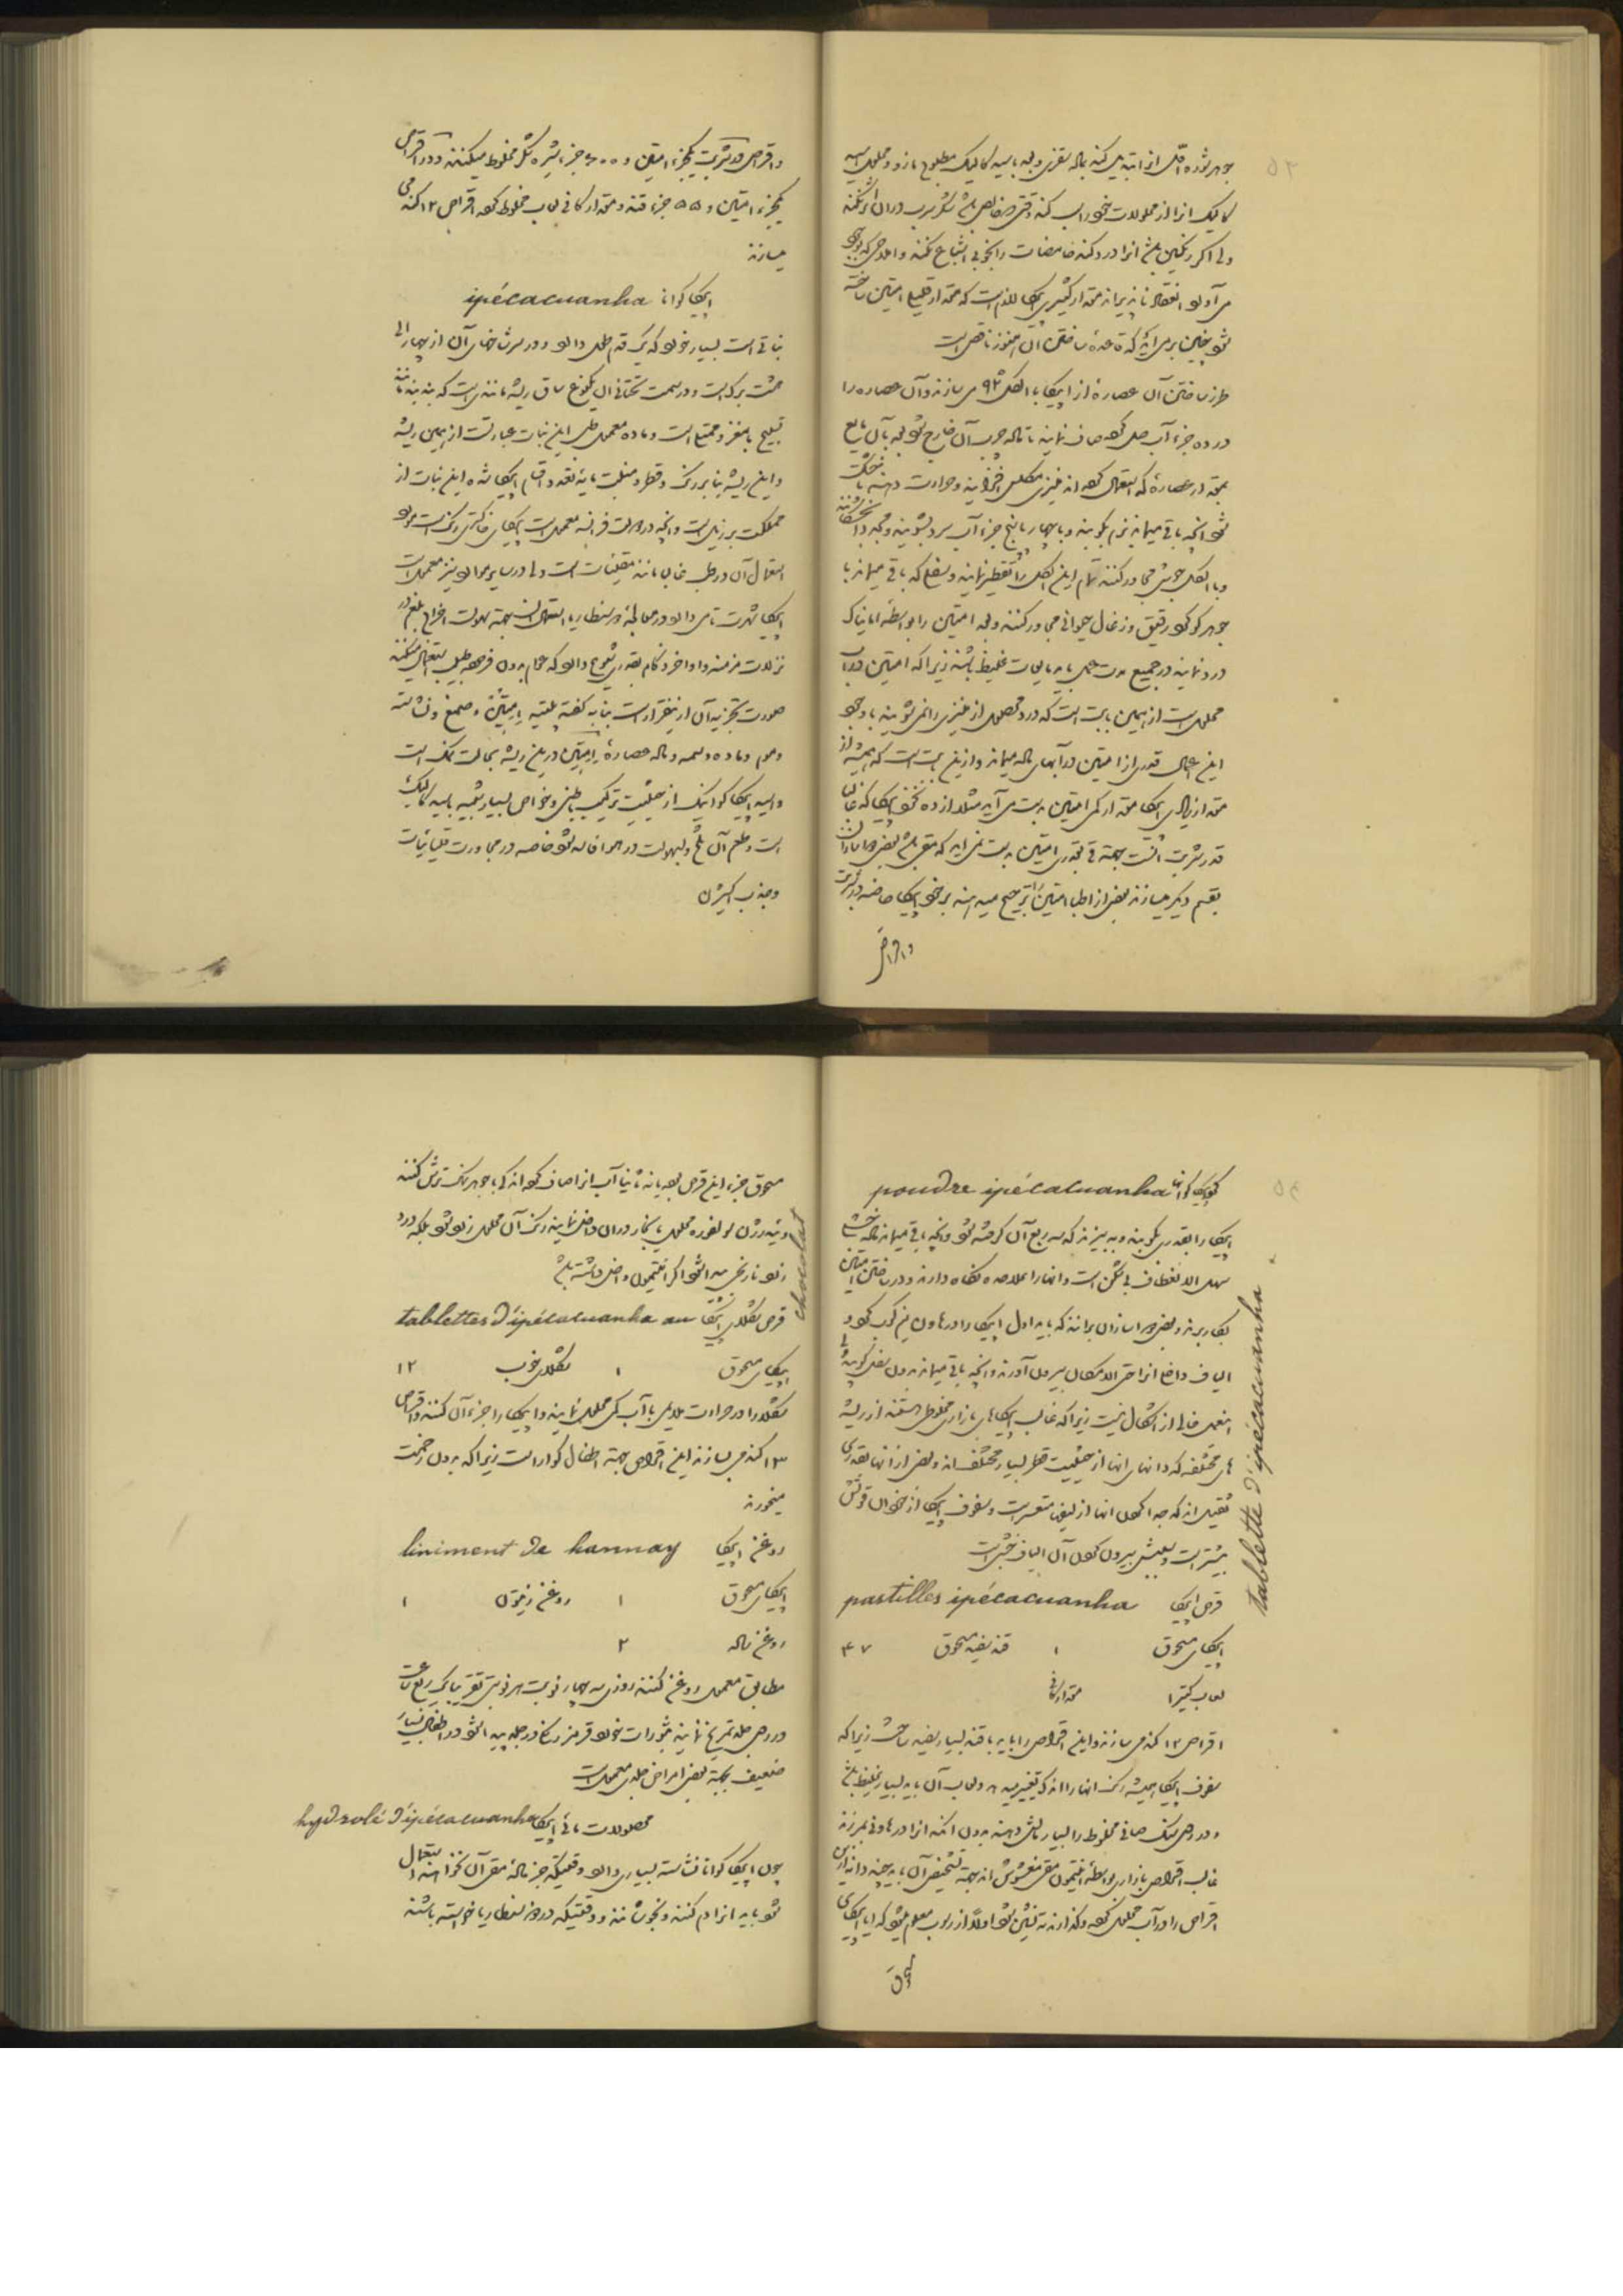 ۵۳
جوهر شده قلی از اتبدیل کند بماله تقزی و بعد باسید کالیک مطبوخ مازو و محلول اسید
کالیک انرا از محلولات خود راسب کند وقتی که خالص باشد در آن اثر نکند
ولی اگر رنگین باشد انرا درد کند حامضات را بخوبی اشباع نکند و املاحی که بوجود
می آورد انعقاد ناپذیرند مقدار کثیری ایپکا لازم است که مقدار قلیل امتین ساخته
شود چنین بر می آید که قاعده ساختن آن هنوز ناقص است
طرز ساختن آن عصاره از ایپکا با الکل ۹۲ می سازند و آن عصاره را
در ده جزء آب حل کرده صاف نمایند تا ماده چرب آن خارج شود بعد بآن مایع
بقدر عصاره که استعمال کرده اند منیزی مکلس افزایند و حرارت دهند تا خشک
شود آنچه باقی میماند نرم بکوبند و با چهار یا پنج جزء آب سرد بشویند و بعد خشکانند
و با الکل جوش مجاور کنند تمام این الکل را تقطیر نمایند و بفضله که باقی میماند با
جوهر گوگرد رقیق و زغال حیوانی مجاور کنند و بعد امتین را بواسطه امونیاک
درد نمایند در جمیع مدت عمل باید مایعات غلیظ باشند زیرا که امتین در آب
محلول است از همین بابت است که درد محصول از منیزی را نمی شویند با وجود
این اعمال قدری از امتین در آبهای ماده میماند و از این بابت است که همیشه از
مقدار زیادی ایپکا مقدار کمی امتین بدست می آید مثلا از ده نخود ایپکا که غالبا
قدر شربت است بجهة قی قدری امتین بدست نمی آید که مقی باشد بعضی دواسازان
بقسم دیگر میسازند بعضی از اطبا امتین را ترجیح میدهند بر خود ایپکا خاصه در شربت
و اقراص
و اقراص در شربت یکجزء امتین و ۶۰۰۰ جزء شیره شکر مخلوط میکنند و در اقراص
یکجزء امتین و ۵۵۰ جزء قند و مقدار کافی لعاب مخلوط کرده اقراص ۱۲ گندمی
میسازند
ایپکاکوانا ipécacuanha
نباتی است بسیار خورد که یک قدم طول دارد و در سر شاخهای آن از چهار الی
هشت برگ است و در سمت تحتانی آن یکنوع ساق ریشه مانندی است که بند بند مانند
تسبیح با مغز و مجتمع است و ماده معمول طبی این نبات عبارتست از همین ریشه
و این ریشه بنا بر رنگ و قطر و منبت مایه تعدد اقسام ایپکا شده این نبات از
مملکت برزیل است و آنچه در دولت فرانسه معمول است ایپکای خاکستری رنگ است مورد
استعمال آن در طب غالبا مانند مقیئات است ولی در سایر موارد نیز معمول است
ایپکا شهرت تامی دارد در معالجه دیسنطاریا استعمال است بجهة سهولت اخراج بلغم در
نزلات مزمنه و اواخر ذکام بقدری شیوع دارد که عوام بدون فرموده طبیب استعمال میکنند
صورت تجزیه آن از اینقرار است بنا به گفته پلتیه امتین و صمغ و نشاسته
و موم و ماده دسمه و ماده عصاره امتین در این ریشه بحالت نمک است
واسید ایپکاکوانیک از حیثیت ترکیب باطنی و خواص بسیار شبیه باسید کالیک
است و طعم آن تلخ و بسهولت در هوا فاسد شود خاصه در مجاورت قلیائیات
و جذب اکسیژن
۵۴
گرد ایپکاکوانا poudre ipécacuanha
ایپکا را بقدری بکوبند و ببیزند که سه ربع آن گرفته شود و آنچه باقی میماند ماده خشبی
سهل الانعطاف بی تمکن است و انها را علاحده نگاه دارند و در ساختن امتین
بکار برند و بعضی دواسازان بر آنند که باید اول ایپکا را در هاون نیم کوب کرد و
الیاف داخل انرا حتی الامکان بیرون آورند و آنچه باقی میماند بدون بفضل کوبند و
اینهم خالی از اشکال نیست زیرا که غالب ایپکاهای بازاری مخلوطی هستند از ریشه
های مختلفه که دانهای انها از حیثیت قطر بسیار مختلف اند و بعضی از انها بقدری
ثقیل اند که جدا کردن انها از لیف متعسر است و سفوف ایپکا از خوردن قوتش
بیشتر است و سببش بیرون کردن آن الیاف خشبی است
قرص ایپکا pastilles ipécacuanha
tablette d'ipécacuanha
ایپکای مسحوق ۱ قند سفید مسحوق ۴۷
لعاب کتیرا مقدار کافی
اقراص ۱۲ گندمی سازند و این اقراص را باید با قند بسیار سفید ساخت زیرا که
سفوف ایپکا همیشه رنگ انها را اندکی تغییر میدهد و لعاب آن باید بسیار غلیظ باشد
و در روی سنگ صافی مخلوط را بسیار مالش دهند بدون آنکه انرا در هاون بریزند
غالب اقراص بازاری بواسطه امتیمون مقی مغشوش اند بجهة تشخیص آن باید چند دانه از این
اقراص را در آب محلول کرده و گذارند ته نشین شود اولا از رسوب معلوم میشود که ایا ایپکای
مسحوق
مسحوق جزء این قرص بوده یا نه ثانیا آب انرا صاف کرده اندکی با جوهر نمک ترش کنند
و ئیدرژن سولفوره محلول یا بخار در آن داخل نمایند رنگ آن محلول زرد شود بلکه درد
زرد نارنجی پیدا شود اگر امتیمون داخل داشته باشد
قرص شکلات ایپکا tablettes d'ipécacuanha au chocolat
ایپکای مسحوق ۱ شکلات خوب ۱۲
شکلات را در حرارت ملایمی با آب کمی محلول نمایند و ایپکا را جزء آن کنند و اقراص
۱۳ گندمی سازند این اقراص بجهة اطفال گوارا است زیرا که بدون زحمت
میخورند
روغن ایپکا liniment de hannay
ایپکای مسحوق ۱ روغن زیتون ۱
روغن ماده ۲
مطابق معمول روغن کنند روزی سه چهار نوبت هر نوبتی تقریبا یک ربع ساعت
در روی جلد تمریخ نمایند بثورات خورد قرمز رنگ در جلد پیدا شود در اطفال بسیار
ضعیف بجهة بعضی امراض جلدی معمول است
محلولات مائی ایپکا hydrolé d'ipécacuanha
چون ایپکاکوانا نشاسته بسیاری دارد وقتیکه جز ماده مقی آن نخواهند استعمال
شود باید انرا دم کنند و نجوشانند و وقتیکه در دیسنطاریا خواسته باشند